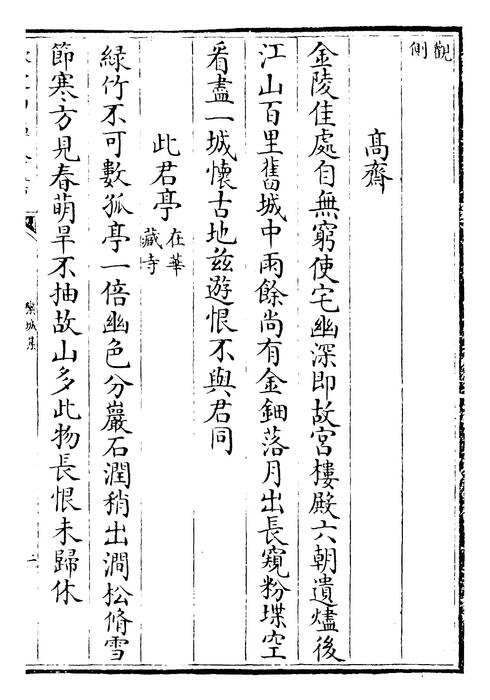 觀側
髙齋
金陵佳處自無窮使宅幽深即故宫樓殿六朝遺燼後
江山百里舊城中雨餘尚有金鈿落月出長窺粉堞空
看盡一城懷古地兹遊恨不與君同
此君亭在華藏寺
緑竹不可數孤亭一倍幽色分巖石潤稍出澗松脩雪
節寒方見春萌旱不抽故山多此物長恨未歸休
欒城集